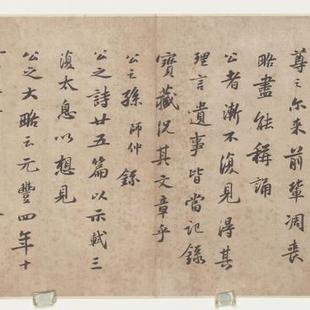 尊之尔來前輩凋喪
略盡能稱誦
公者漸不復見得其
理言遺事皆當記錄
寶藏况其文章乎
公之孫師仲錄
公之詩廿五篇以示軾三
復太息以想見
公之大略云元豐四年十